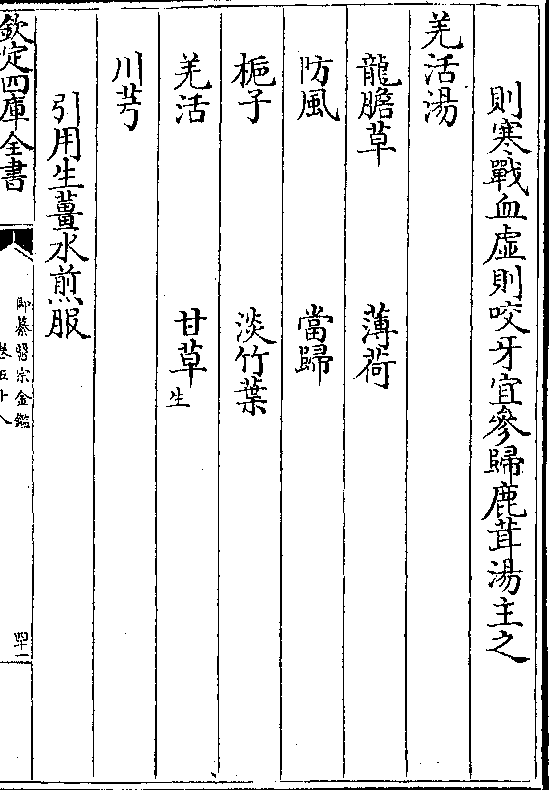 則寒戰血虛則咬牙宜參歸鹿茸湯主之
羌活湯
龍膽草　薄荷
防風　當歸
梔子　淡竹葉
羌活　甘草生
川芎
引用生薑水煎服
欽定四庫全書
御纂醫宗金鑑
卷五十八
四十一